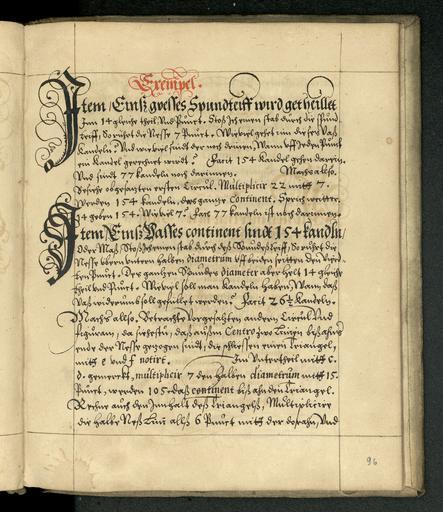 Exempel.
Item / Einß Vasses Spundtieff wird getheillet
Inn 14 gleiche theil Vnd Punct. Stoß Ich einen stab durch die Spund
tieff, So rühret die Nesse 7 Punct. Wieviel gehet inn dieses Vaß
Kandeln? Vnd wievil sindt der noch dainen, Wann vff Jeden Punct
ein Kandel gerechnet werdt? Facit 154 Kandel gehen darein.
Vnd sindt 77 kandeln noch darinnen. Machs also.
Besihe obgesetzten ersten Circul. Multiplicir 22 mitt 7.
Werden 154 kandeln, des gantze Continent. Sprich weitter.
14 geben 154. Wieviel 7? Facit 77 kandeln ist noch darinnen.
Item / Einß Vasses continent sindt 154 kandln /
Oder Maß. Stoß Ich einen stab durch deß Wandeß tieff, So rühret die
Nesse obern vntern halben diametrum vff beiden seitten den Vierd-
ten Punct. Des gantzen Spundes diameter aber helt 14 gleiche
theil vnd Punct. Wieviel soll man Kandeln haben, Wann daß
Vaß widerumb soll gefüllet werden? Facit 26½ Kandeln.
Machs allso. Betrachte Vorgesetzten andern Circul Vnd
figuram, da siehestu, daß außm Centro zwo Linien biß ahns
ende der Nesse gezogen sindt, die schliessen einen Triangel,
mitt e vnd f notirt. Im Vntertheil mitt c.
d. gemerckt, multiplicir 7 den halben diametrum mitt 15.
Punct, werden 105. daß continent biß ahn den Triangel.
Rechne auch den Innhalt deß Triangels, Multiplicire
die halbe Neß Lini allß 6 Punct mitt der dorahn, Vnd
96